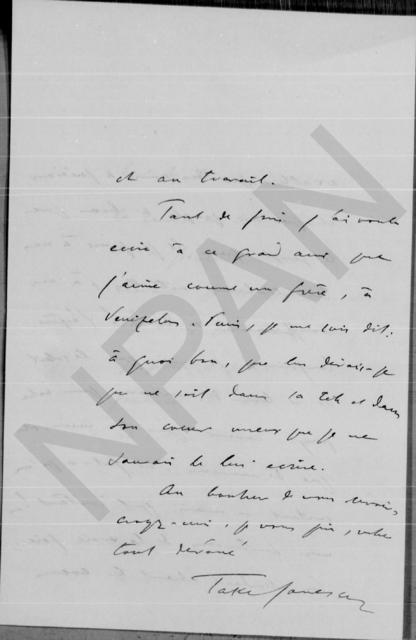 et au travail.
Tant de fois j'ai voulu
écrire à ce grand ami que
j'aime comme un frère, à
Venizelos. Puis, je me suis dit:
à quoi bon, que lui dirais-je
qui ne soit dans sa tête et dans
son coeur mieux que je ne
saurais le lui écrire.
Au bonheur de vous revoir,
croyez-moi, je vous prie, votre
tout dévoué
Take Jonescu
NPAN